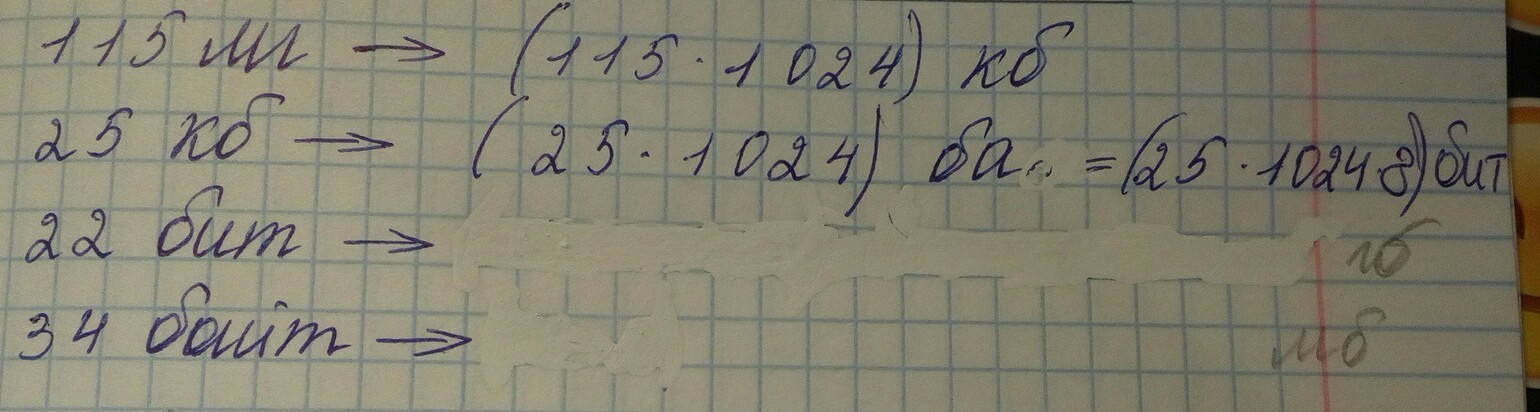 115 мг → (115·1024) кб
25 кб → (25·1024) ба = (25·1024·8) бит
22 бит → гб
34 байт → мб